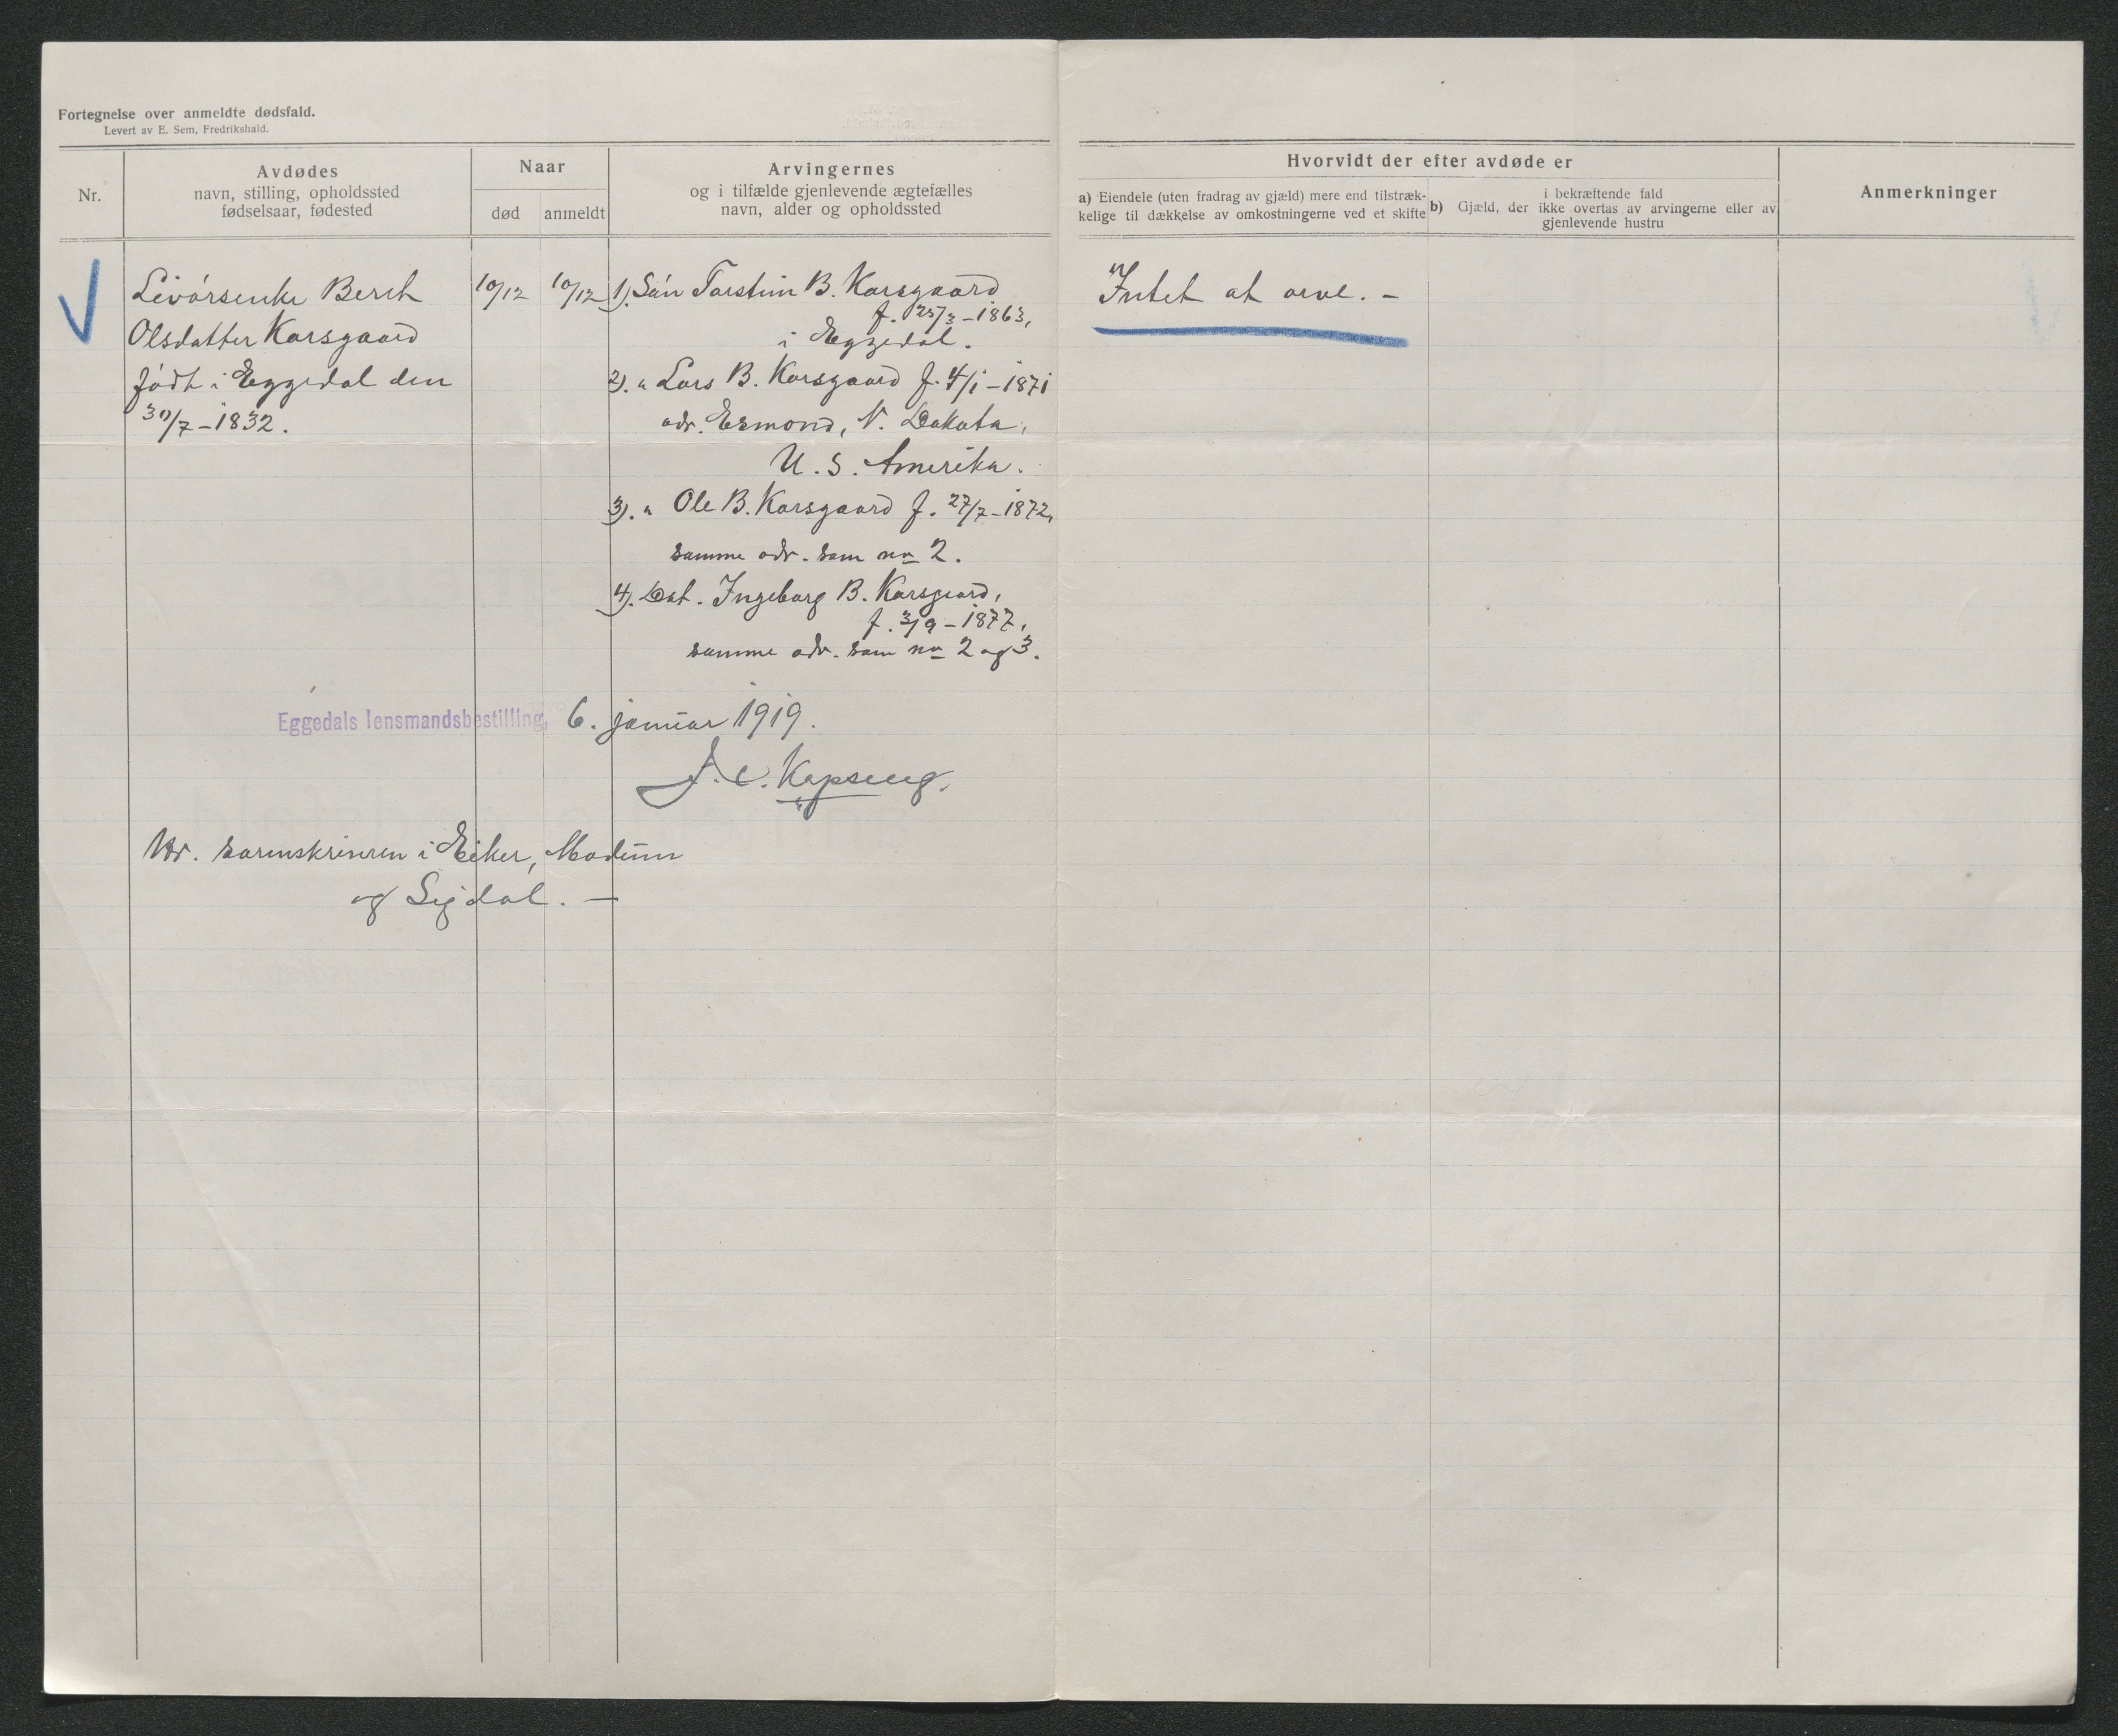 Fortegnelse over anmeldte dødsfald.
Levert av E. Sem, Fredrikshald.
Nr.
Avdødes
navn, stilling, opholdssted
fødselsaar, fødested
Naar
død
anmeldt
Arvingernes
og i tilfælde gjenlevende ægtefælles
navn, alder og opholdssted
Hvorvidt der efter avdøde er
a) Eiendele (uten fradrag av gjæld) mere end tilstræk-
kelige til dækkelse av omkostningerne ved et skifte
i bekræftende fald
b) Gjæld, der ikke overtas av arvingerne eller av
gjenlevende hustru
Anmerkninger
Livørsenke Beret
Olsdatter Korsgaard
født i Eggedal den
30/7-1832.
10/12
10/12
1). Søn Torstein B. Korsgaard
f. 25/3-1863,
i Eggedal.
2). " Lars B. Korsgaard f. 4/1-1871
adr. Esmond, N. Dakota,
U. S. Amerika.
3). " Ole B. Korsgaard f. 27/7-1872,
samme adr. som no 2.
4). Dat. Ingeborg B. Korsgaard,
f. 3/9-1877,
samme adr. som no 2 og 3.
Intet at arve. -
Eggedals lensmandsbestilling, 6. januar 1919.
Hr. sorenskriveren i Eiker, Modum
og Sigdal. -